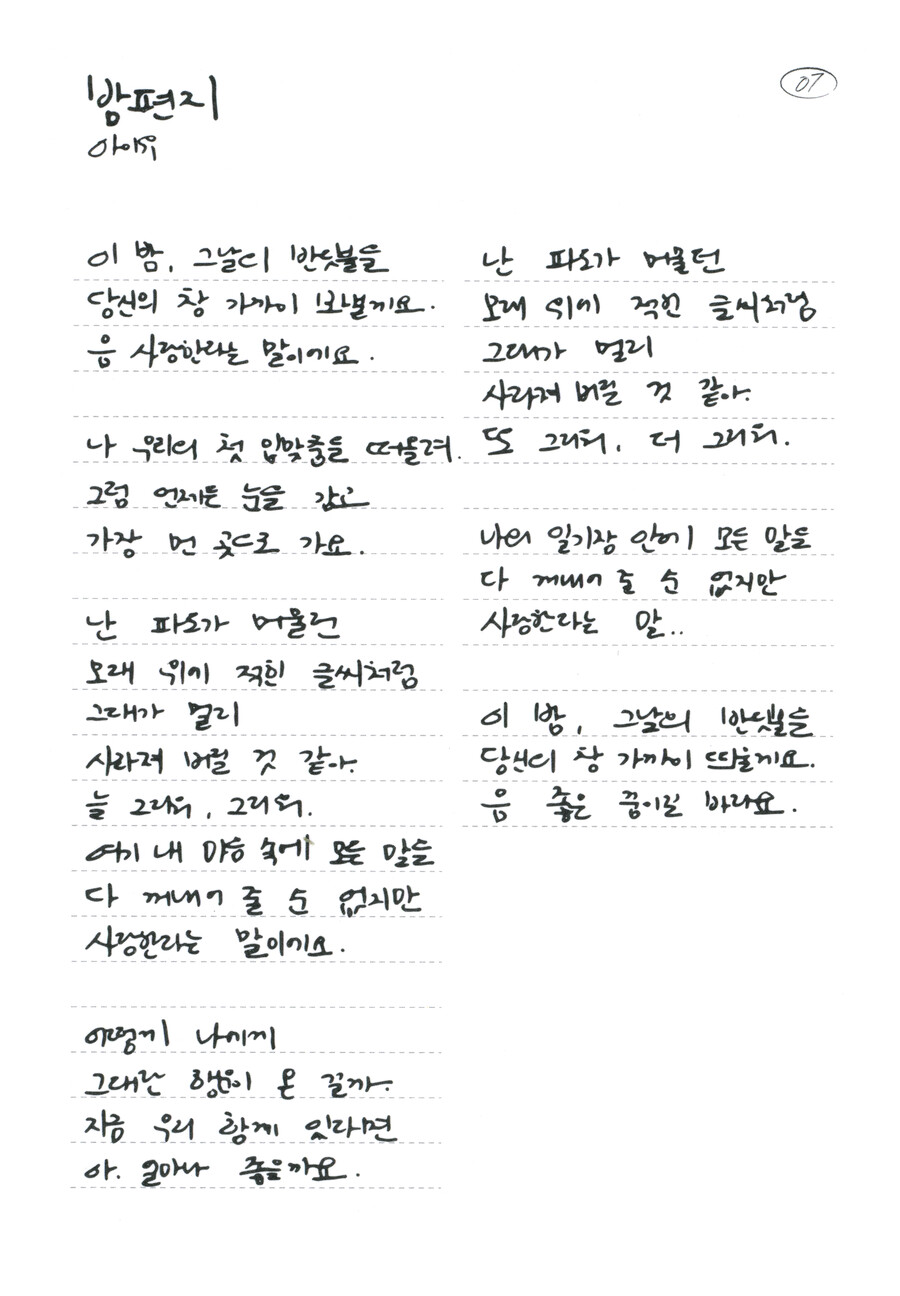 밤편지
아이유
07
이 밤, 그날의 반딧불을
당신의 창 가까이 보낼게요.
음 사랑한다는 말이에요.
나 우리의 첫 입맞춤을 떠올려.
그럼 언제든 눈을 감고
가장 먼 곳으로 가요.
난 파도가 머물던
모래 위에 적힌 글씨처럼
그대가 멀리
사라져 버릴 것 같아.
늘 그리워, 그리워.
여기 내 마음 속에 모든 말을
다 꺼내어 줄 순 없지만
사랑한다는 말이에요.
어떻게 나에게
그대란 행운이 온 걸까.
지금 우리 함께 있다면
아. 얼마나 좋을까요.
난 파도가 머물던
모래 위에 적힌 글씨처럼
그대가 멀리
사라져 버릴 것 같아.
또 그리워, 더 그리워.
나의 일기장 안에 모든 말을
다 꺼내어 줄 순 없지만
사랑한다는 말..
이 밤, 그날의 반딧불을
당신의 창 가까이 띄울게요.
음 좋은 꿈이길 바라요.